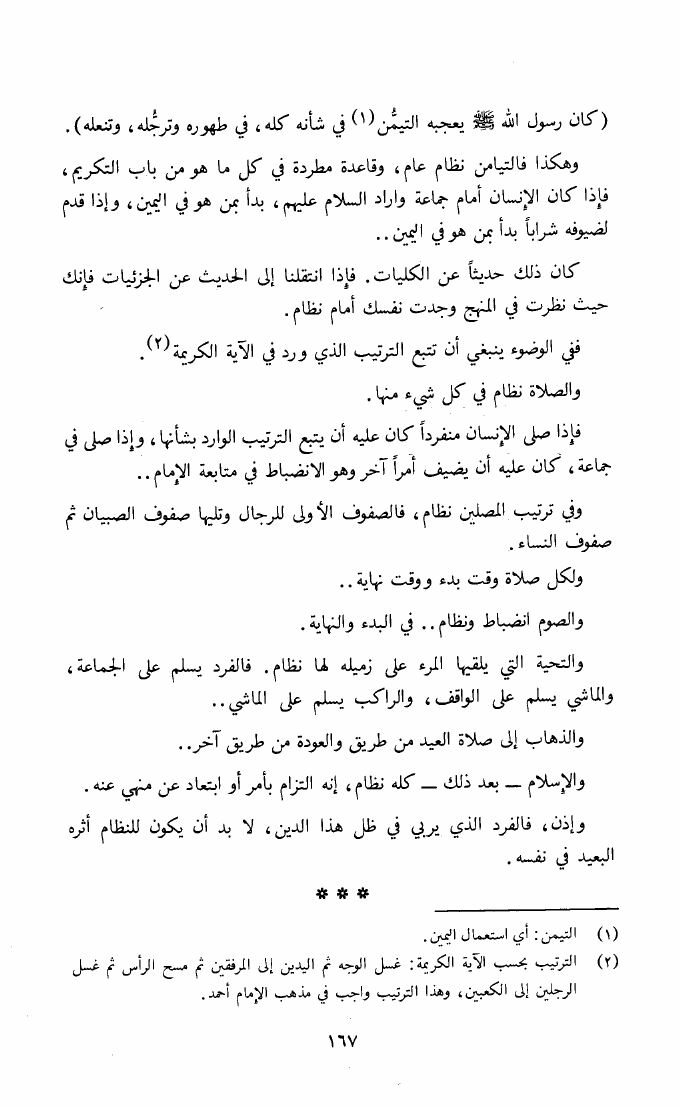 (كان رسول الله ﷺ يعجبه التيمُّن(١) في شأنه كله، في طهوره وترجُّله، وتنعله).
وهكذا فالتيامن نظام عام، وقاعدة مطردة في كل ما هو من باب التكريم،
فإذا كان الإنسان أمام جماعة واراد السلام عليهم، بدأ بمن هو في اليمين، وإذا قدم
لضيوفه شراباً بدأ بمن هو في اليمين..
كان ذلك حديثاً عن الكليات. فإذا انتقلنا إلى الحديث عن الجزئيات فإنك
حيث نظرت في المنهج وجدت نفسك أمام نظام.
ففي الوضوء ينبغي أن تتبع الترتيب الذي ورد في الآية الكريمة(٢).
والصلاة نظام في كل شيء منها.
فإذا صلى الإنسان منفرداً كان عليه أن يتبع الترتيب الوارد بشأنها، وإذا صلى في
جماعة، كان عليه أن يضيف أمراً آخر وهو الانضباط في متابعة الإمام..
وفي ترتيب المصلين نظام، فالصفوف الأولى للرجال وتليها صفوف الصبيان ثم
صفوف النساء.
ولكل صلاة وقت بدء ووقت نهاية..
والصوم انضباط ونظام.. في البدء والنهاية.
والتحية التي يلقيها المرء على زميله لها نظام. فالفرد يسلم على الجماعة،
والماشي يسلم على الواقف، والراكب يسلم على الماشي..
والذهاب إلى صلاة العيد من طريق والعودة من طريق آخر..
والإسلام ــ بعد ذلك ــ كله نظام، إنه التزام بأمر أو ابتعاد عن منهي عنه.
وإذن، فالفرد الذي يربي في ظل هذا الدين، لا بد أن يكون للنظام أثره
البعيد في نفسه.
* * *
(١) التيمن: أي استعمال اليمين.
(٢) الترتيب بحسب الآية الكريمة: غسل الوجه ثم اليدين إلى المرفقين ثم مسح الرأس ثم غسل
الرجلين إلى الكعبين، وهذا الترتيب واجب في مذهب الإمام أحمد.
١٦٧